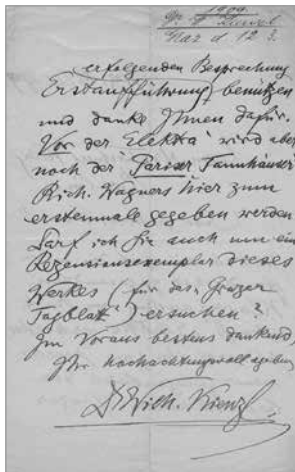 1909
Graz d. 12 3.
erfolgenden Besprechung
Erstaufführung benutzen
und danke Ihnen dafür.
Vor der „Elektra" wird aber
noch der Pariser Tannhäuser
Rich. Wagners hier zum
erstenmale gegeben werden
Darf ich Sie auch um ein
Rezensionsexemplar dieses
Werkes (für das „Grazer
Tagblatt") ersuchen?
Im Voraus bestens dankend,
Ihr hochachtungsvoll ergeben
Dr Wilh. Kienzl.